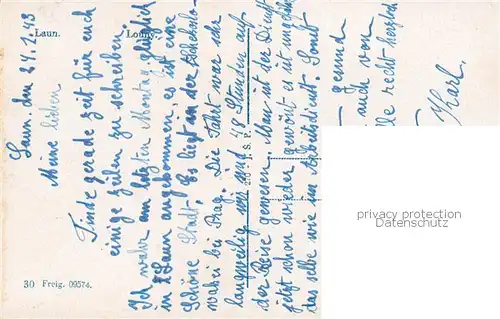 Laun.
Louny.
Laun. den 24.1.43
Meine lieben
Finde gerade zeit für euch
einige zeilen zu schreiben
Ich wahr am letzten Montag glücklich
in Laun angekommen, es ist eine
Schöne Stadt. Es liegt in der
wahei bei Prag. Die Fahrt war sehr
langweilig wir sind 48 Stunden auf
der Reise gewesen. Man ist der Dienst
jetzt schon wieder gewönt es ist ungefähr
das selbe wie im Arbeitsdienst. Sonst
gesund
auch von
alle recht herzlich
Karl.
J. S. P.
30 Freig. 09574.
privacy protection
www.ansichtskarten-center.de